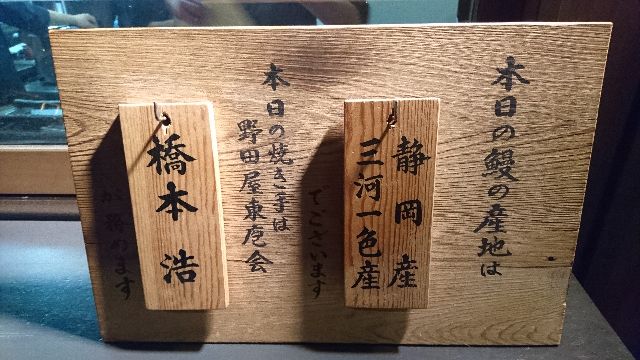 本日の鰻の産地は
静岡産
三河一色産
でございます
本日の焼き手は
野田屋東庖会
橋本 浩
が務めます